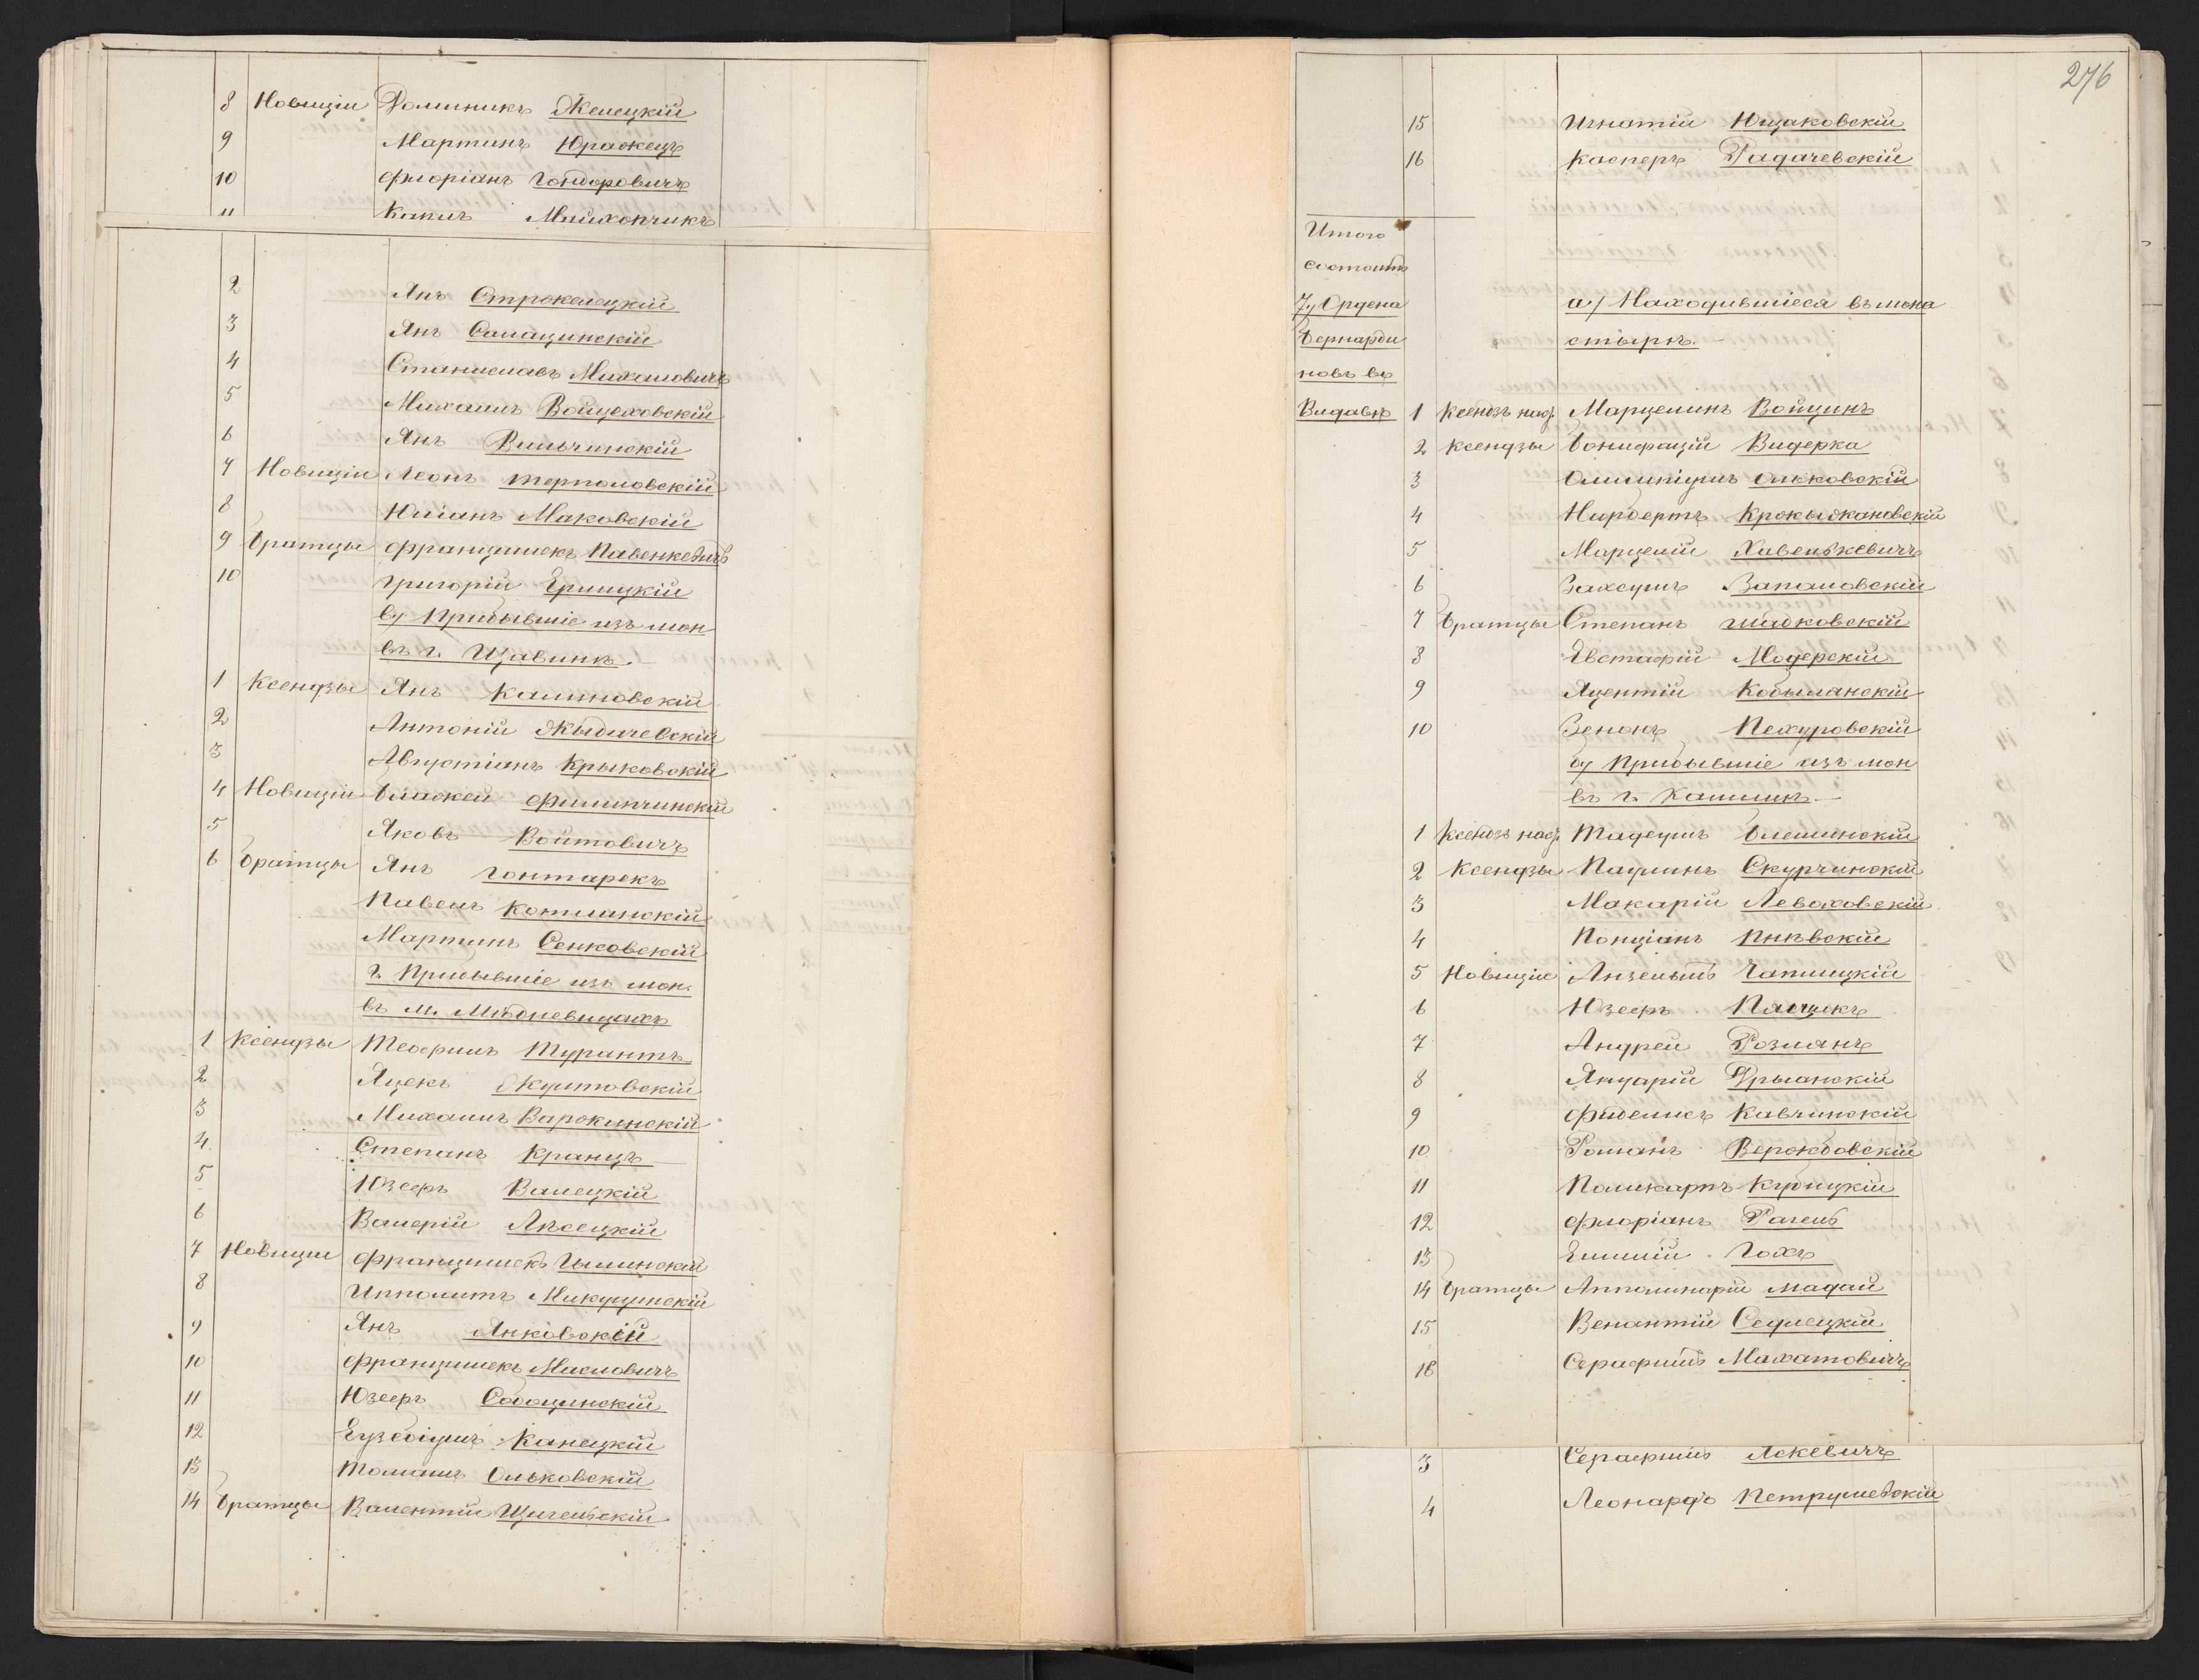 8 Новиціи Доминикъ Желецкій
9 Мартинъ Юражецъ
10 Флоріанъ Гондоровичъ
11 Камилъ
2 Янъ Строжелецкій
3 Янъ Салацинскій
4 Станиславъ Михаловичъ
5 Михаилъ Войцеховскій
6 Янъ Вильчинскій
7 Новиціи Леонъ Терполовскій
8 Юліанъ Маковскій
9 Братцы Францишекъ Павенкевичъ
10 Григорій Ерлицкій
в) Прибывшіе изъ мон
въ г. Щавинѣ.
1 Ксендзы Янъ Калиновскій
2 Антоній Жыдичевскій
3 Августіанъ Крыковскій
4 Новиціи Блажей Филипчинскій
5 Яковъ Войтовичъ
6 Братцы Янъ Гонтарекъ
Павелъ Котланскій
Мартинъ Сенковскій
г. Прибывшіе изъ мон.
въ м. Мѣдневицахъ
1 Ксендзы Теофилъ Турантъ
2 Яцекъ Окултовскій
3 Михаилъ Варжинскій
4 Степанъ Кранцъ
5 Юзефъ Валецкій
6 Валерій Лѣсецкій
7 Новиции Францишекъ Цылинскій
8 Ипполитъ Микрутскій
9 Янъ Янковскій
10 Францишекъ Масловичъ
11 Юзефъ Собоцинскій
12 Еузебіушъ Канецкій
13 Томашъ Ольковскій
14 Братцы Валентій Щигельскій
276
15 Игнатій Ющаковскій
16 Касперъ Радачевскій
Итого
состоитъ
7) Ордена а) Находившіеся въ мона
Бернарди стырѣ.
новъ въ
Видавѣ 1 Ксендзъ над. Марцелинъ Войцинъ
2 Ксендзы Бонифацій Видерка
3 Олимпіушъ Ольковскій
4 Нирбертъ Крокыжановскій
5 Марцелій Хивелькевичъ
6 Захеушъ Запаловскій
7 Братцы Степанъ Шадковскій
8 Евстафій Модерскій
9 Яцентій Кобыланскій
10 Зенонъ Пехуровскій
б) Прибывшіе изъ мон
въ г. Калишѣ.
1 Ксендзъ над. Тадеушъ Блешинскій
2 Ксендзы Паулинъ Скурчинскій
3 Макарій Левоховскій
4 Понціанъ Пнѣвскій
5 Новиціи Анзельмъ Чаплицкій
6 Юзефъ Плащикъ
7 Андрей Розманъ
8 Януарій Урыанскій
9 Фиделисъ Кавчинскій
10 Романъ Вержбовскій
11 Поликарпъ Кубицкій
12 Флоріанъ Рагель
13 Емилій Гохъ
14 Братцы Апполинарій Мадай
15 Венантій Седлецкій
16 Серафимъ Махатовичъ
3 Серафимъ Яскевичъ
4 Леонардъ Петрушевскій